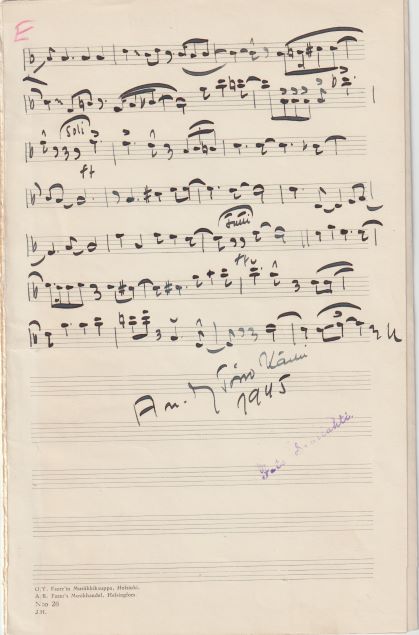 E
Soli
ff
Tutti
ff
Arr. Toivo Kärki
1945
O.Y. Fazer'in Musiikkikauppa, Helsinki.
A.B. Fazer's Musikhandel, Helsingfors.
N:o 26
J.H.